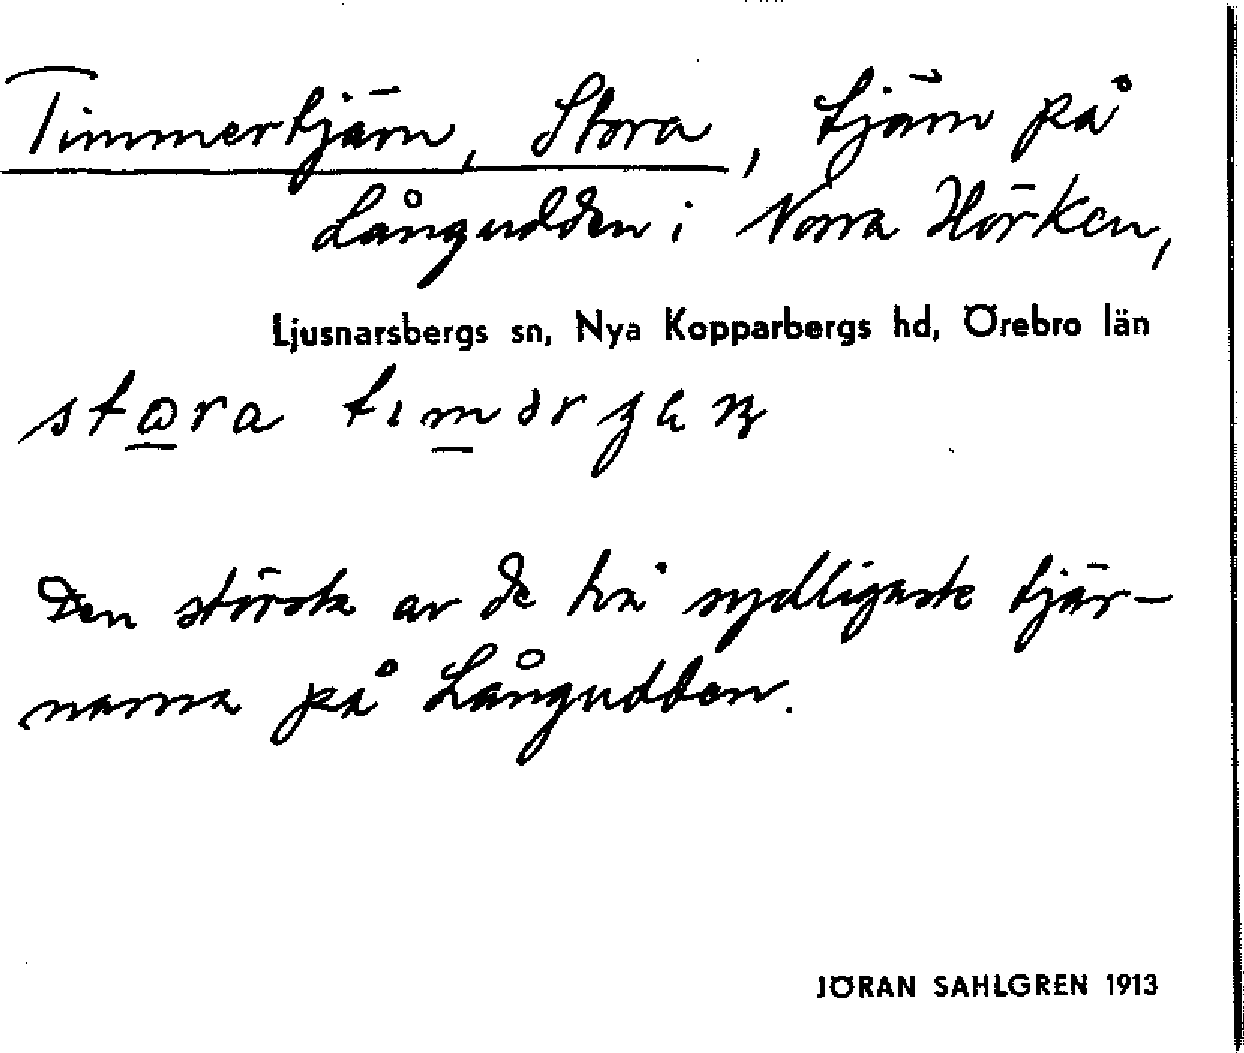 Timmertjärn, Stora, tjärn på
Långudden i Norra Hörken,
Ljusnarsbergs sn, Nya Kopparbergs hd, Örebro län
Den största av de två sydligaste tjär-
narna på Långudden.
JÖRAN SAHLGREN 1913